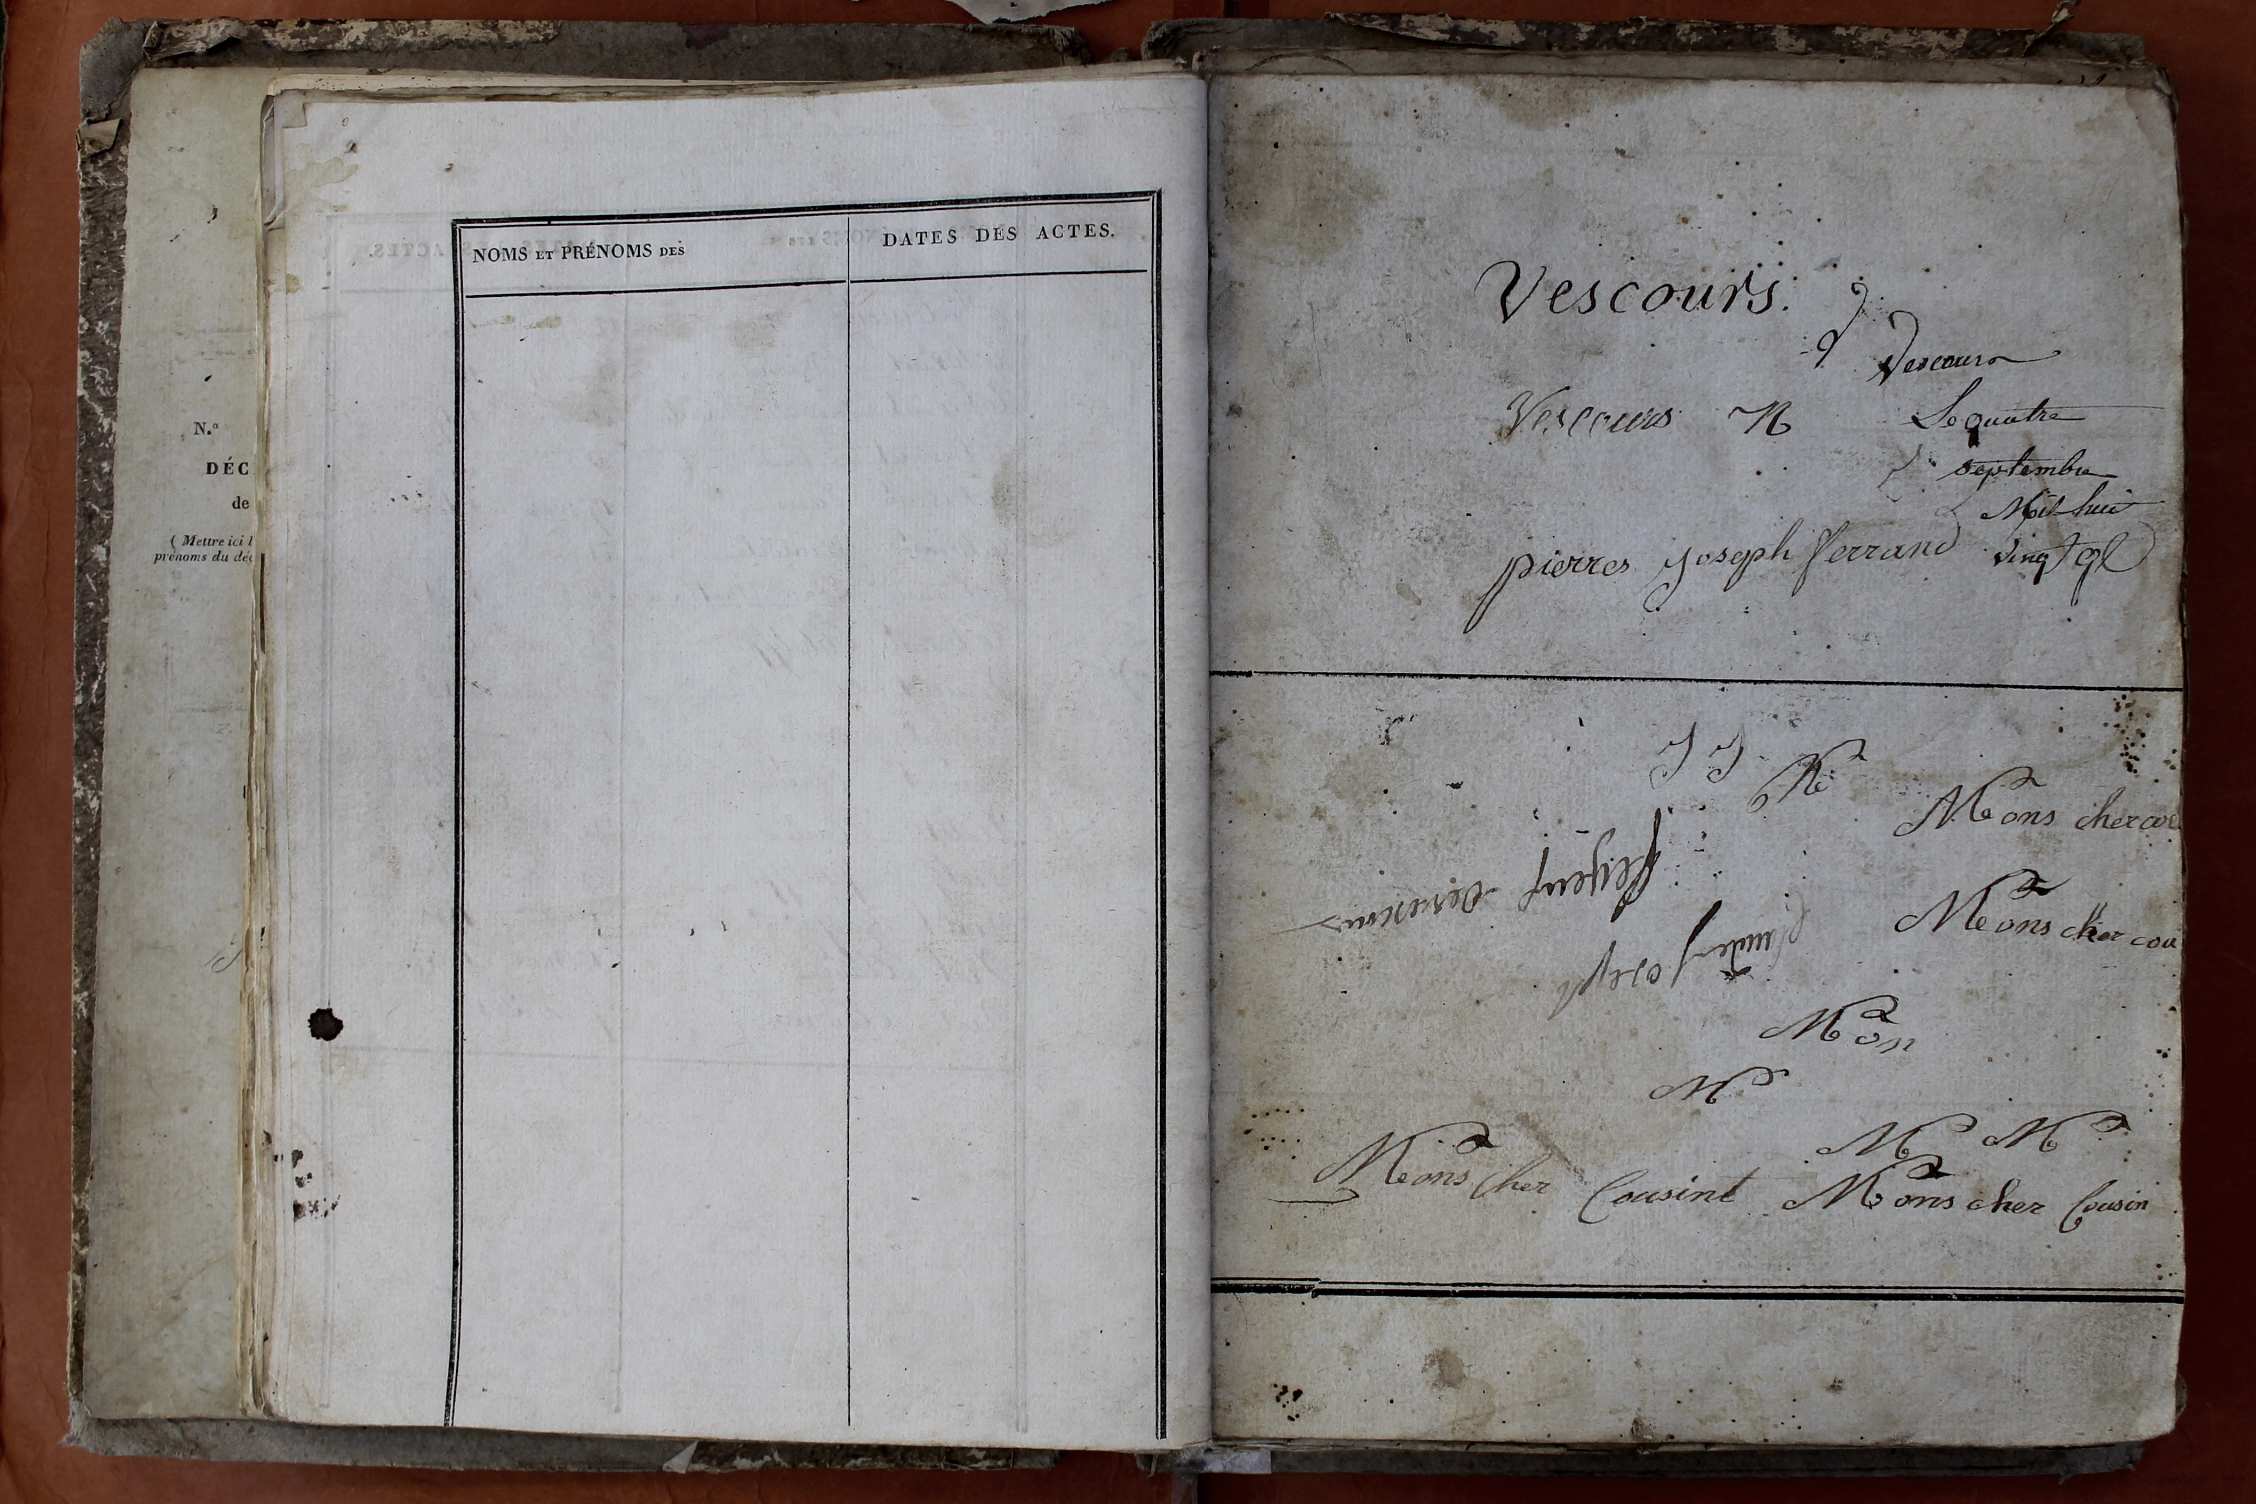 N.º
DÉC
de
( Mettre ici l
prénoms du déc
NOMS ET PRÉNOMS DES
DATES DES ACTES.
Vescours.
Vescours
Vescours
Le quatre
septembre
Mil huit
pierres joseph ferrand vingt
M
Mons cher cou
Mons cher cou
claude joseph
Mon
M
M M
Mons cher Cousint Mons cher Cousin